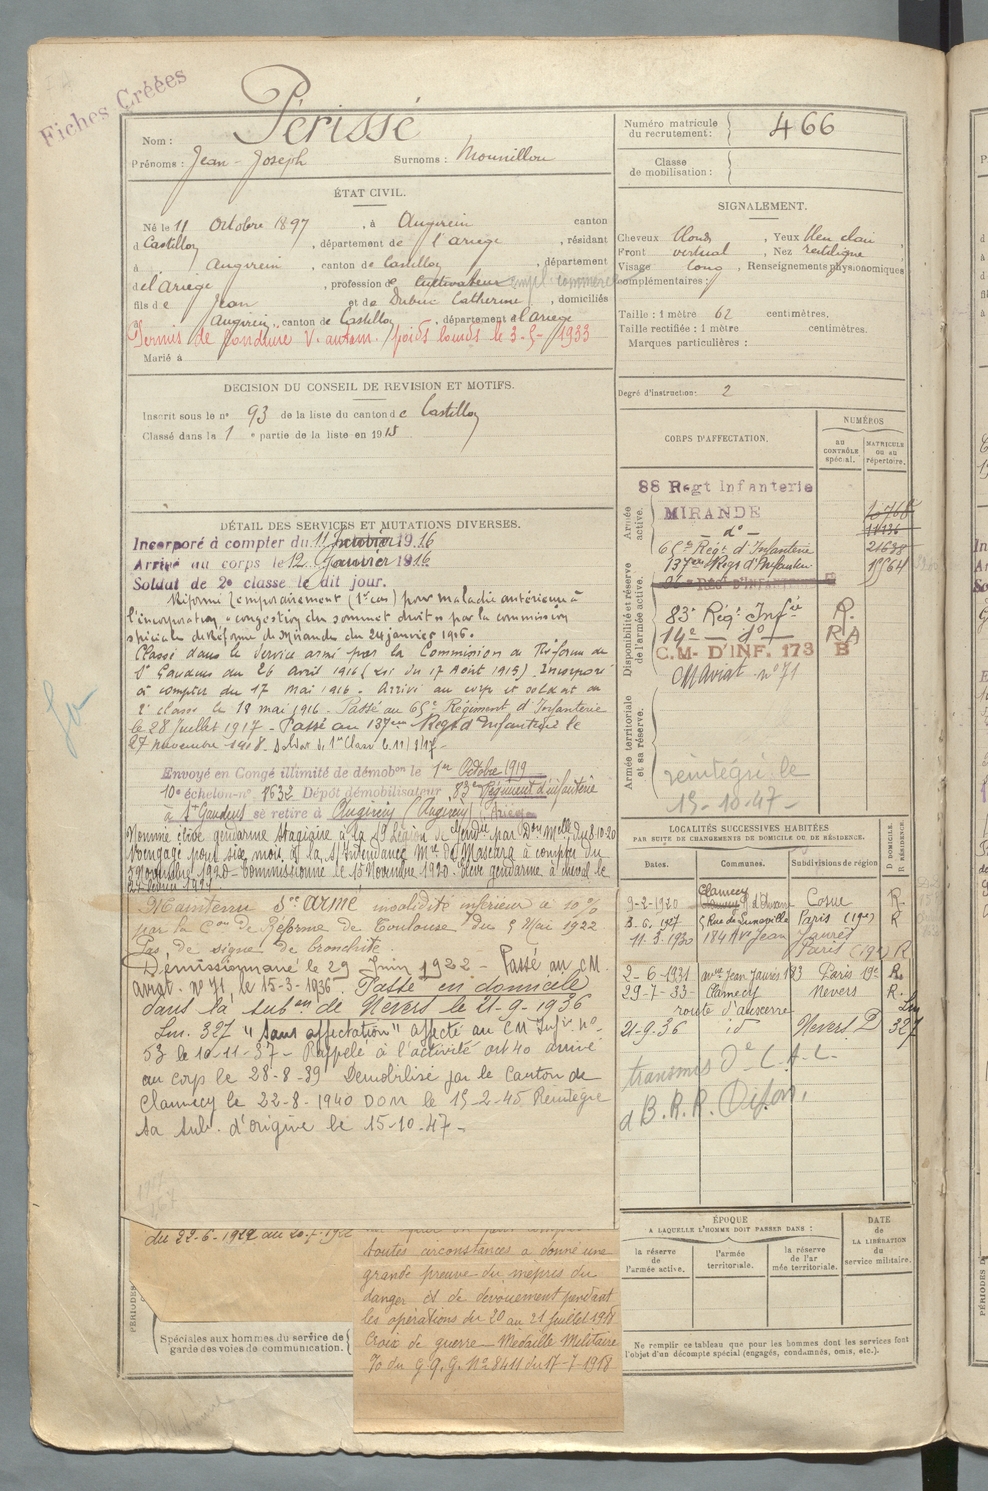 Fiches Créées
Périssé
Nom :
Prénoms : Jean-Joseph Surnoms : Mounillou
ÉTAT CIVIL.
Né le 11 Octobre 1897, à Augirein canton
d Castillon, département de l'Ariège, résidant
à Augirein, canton de Castillon, département
de l'Ariège, profession de cultivateur empl. commerce
fils de Jean et de Dubuc Catherine, domiciliés
à Augirein, canton de Castillon, département d l'ariège
Permis de conduire V. autom. poids lourds le 3-5-1933
Marié à
DECISION DU CONSEIL DE REVISION ET MOTIFS.
Inscrit sous le nº 93 de la liste du canton de Castillon
Classé dans la 1 e partie de la liste en 1915
DÉTAIL DES SERVICES ET MUTATIONS DIVERSES.
Incorporé à compter du 11 Janvier 1916
Arrivé au corps le 12 Janvier 1916
Soldat de 2e classe le dit jour.
Réformé temporairement (1er cas) pour maladie antérieure à
l'incorporation, congestion du sommet droit par la commission
spéciale de Réforme de Mirande du 24 janvier 1916.
Classé dans le Service armé par la Commission de Réforme de
St Gaudens du 26 Avril 1916 (Loi du 17 Août 1915) Incorporé
à compter du 17 mai 1916. Arrivé au corps et soldat de
2e classe le 18 mai 1916. Passé au 65e Régiment d'Infanterie
le 28 Juillet 1917. Passé au 137ème Régt d'Infanterie le
27 novembre 1918. Soldat de 1ère Classe le
Envoyé en Congé illimité de démobon le 1er Octobre 1919
10e échelon-nº 1632 Dépôt démobilisateur 83e Régiment d'infanterie
à St Gaudens se retire à Augirein (Augirein) (Ariège)
Nommé élève gendarme Stagiaire à la Légion de Gendie par Don Melle du 8.10.20
Rengagé pour six mois à la S/Intendance Mre de Mascara à compter du
3 Novembre 1920 - Commissionné le 15 Novembre 1920. Elève gendarme à cheval le
Maintenu Sce armé invalidité inférieur à 10%
par la Con de Réforme de Toulouse du 5 Mai 1922
Pas de signe de bronchite.
Démissionné le 29 Juin 1922 - Passé au C M.
Aviat. nº 71, le 15-3-1936. Passé en domicile
dans la subon de Nevers le 21-9-1936
Lm. 327 "Sans affectation" affecté au CM Infie nº
53 le 10-11-37 - Rappelé à l'activité art 40 arrivé
au corps le 28-8-39 Démobilisé par le Canton de
Clamecy le 22-8-1940 DDM le 15-2-45 Réintégré
sa sub. d'origine le 15-10-47 -
du 22-6-1922 au
toutes circonstances a donné une
grande preuve du mépris du
danger et de dévouement pendant
les opérations du 20 au 21 juillet 1918
Croix de guerre - Médaille Militaire
Jo du g.q.g. N° 8411 du 17-7-1918
PÉRIODES
Spéciales aux hommes du service de
garde des voies de communication.
Numéro matricule
du recrutement : 466
Classe
de mobilisation :
SIGNALEMENT.
Cheveux blonds, Yeux bleu clair
Front vertical, Nez rectiligne
Visage long, Renseignements physionomiques
complémentaires :
Taille : 1 mètre 62 centimètres.
Taille rectifiée : 1 mètre centimètres.
Marques particulières :
Degré d'instruction : 2
CORPS D'AFFECTATION.
NUMÉROS
AU CONTRÔLE spécial.
MATRICULE OU AU répertoire.
Armée active.
88 Regt Infanterie
MIRANDE
- dº -
65e Régt d'Infanterie 21638
137ème Régt d'Infanterie 1564
Disponibilité et réserve de l'armée active.
83e Régt Infie R.
14e - dº - RA
C.M. D'INF. 173 B
CM Aviat nº 71
Armée territoriale et sa réserve.
réintégré le
15-10-47 -
LOCALITÉS SUCCESSIVES HABITÉES
PAR SUITE DE CHANGEMENTS DE DOMICILE OU DE RÉSIDENCE.
Dates. Communes. Subdivisions de région
D. DOMICILE. R. RÉSIDENCE.
Clamecy
9-2-1920 Cosne R.
3-6-1927 5 Rue de Lunéville Paris (19e) R
11-3-1930 184 Ave Jean Jaurès
Paris (19e) R
2-6-1931 Ave Jean Jaurès 183 Paris 19e R.
29-7-33 - Clamecy Nevers R.
route d'auxerre
21-9-36 id Nevers D Lm 327
transmis Dr C.A.L.
à B.R.R. Dijon.
ÉPOQUE
A LAQUELLE L'HOMME DOIT PASSER DANS :
la réserve de l'armée active.
l'armée territoriale.
la réserve de l'armée territoriale.
DATE de LA LIBÉRATION du service militaire.
Ne remplir ce tableau que pour les hommes dont les services font
l'objet d'un décompte spécial (engagés, condamnés, omis, etc.).